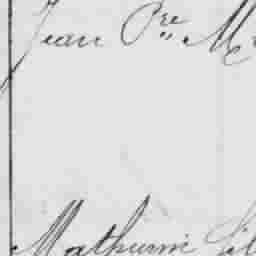 Jean Pre M
Mathurin